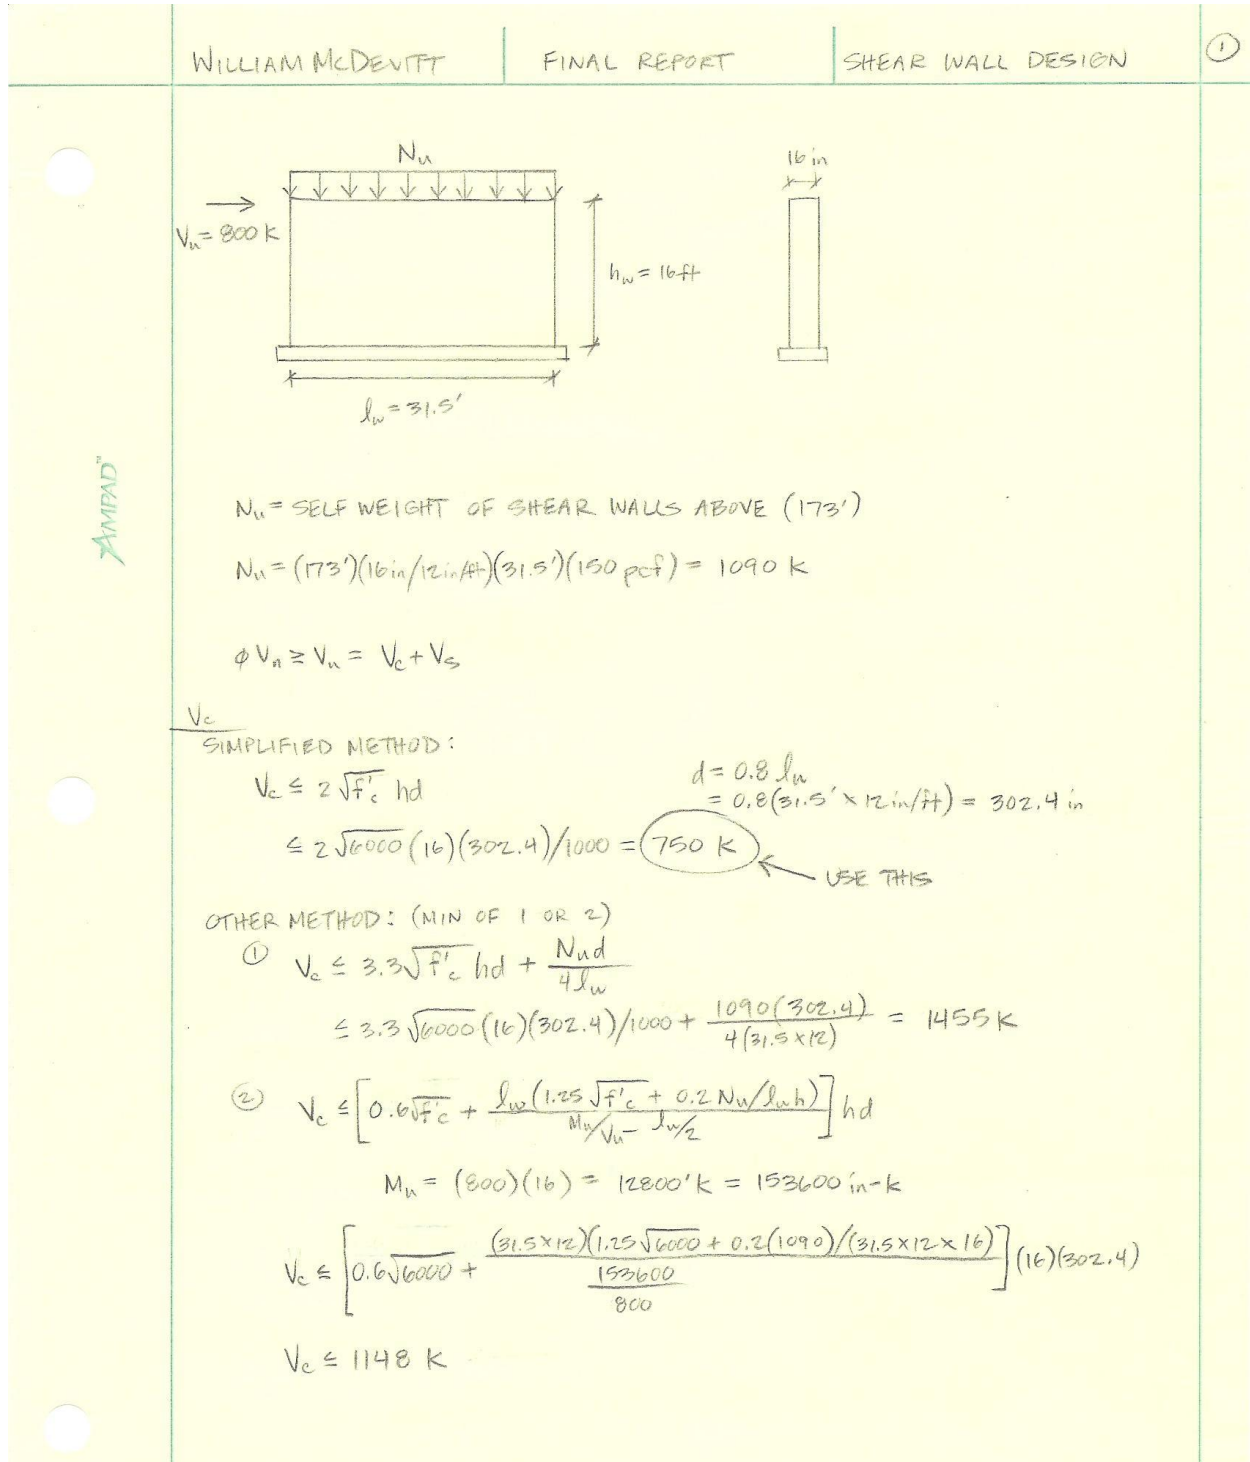 WILLIAM McDEVITT FINAL REPORT SHEAR WALL DESIGN ①
Nu
16 in
Vu = 800 K
hw = 16 ft
lw = 31.5'
AMPAD™
Nu = SELF WEIGHT OF SHEAR WALLS ABOVE (173')
Nu = (173')(16in/12in/ft)(31.5')(150 pcf) = 1090 K
φVn ≥ Vu = Vc + Vs
Vc
SIMPLIFIED METHOD:
Vc ≤ 2√f'c hd
d = 0.8 lw
= 0.8(31.5' × 12 in/ft) = 302.4 in
≤ 2√6000 (16)(302.4)/1000 = 750 K
USE THIS
OTHER METHOD: (MIN OF 1 OR 2)
① Vc ≤ 3.3√f'c hd + Nud/4lw
≤ 3.3√6000 (16)(302.4)/1000 + 1090(302.4)/4(31.5×12) = 1455 K
② Vc ≤ [0.6√f'c + lw(1.25√f'c + 0.2 Nu/lwh)/Mu/Vu - lw/2] hd
Mu = (800)(16) = 12800'K = 153600 in-K
Vc ≤ [0.6√6000 + (31.5×12)(1.25√6000 + 0.2(1090)/(31.5×12×16)/153600/800] (16)(302.4)
Vc ≤ 1148 K